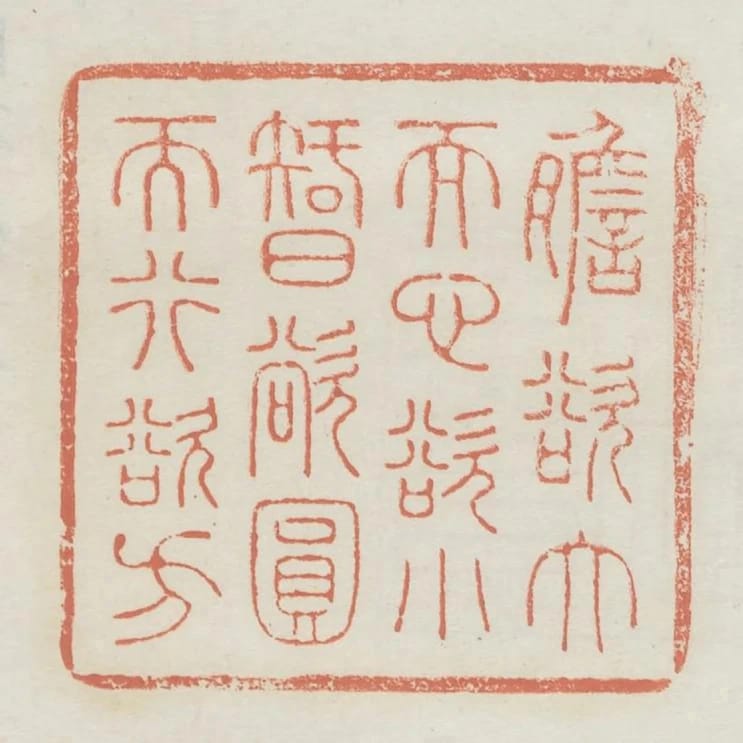 膽欲大
而心欲小
智欲圓
而行欲方